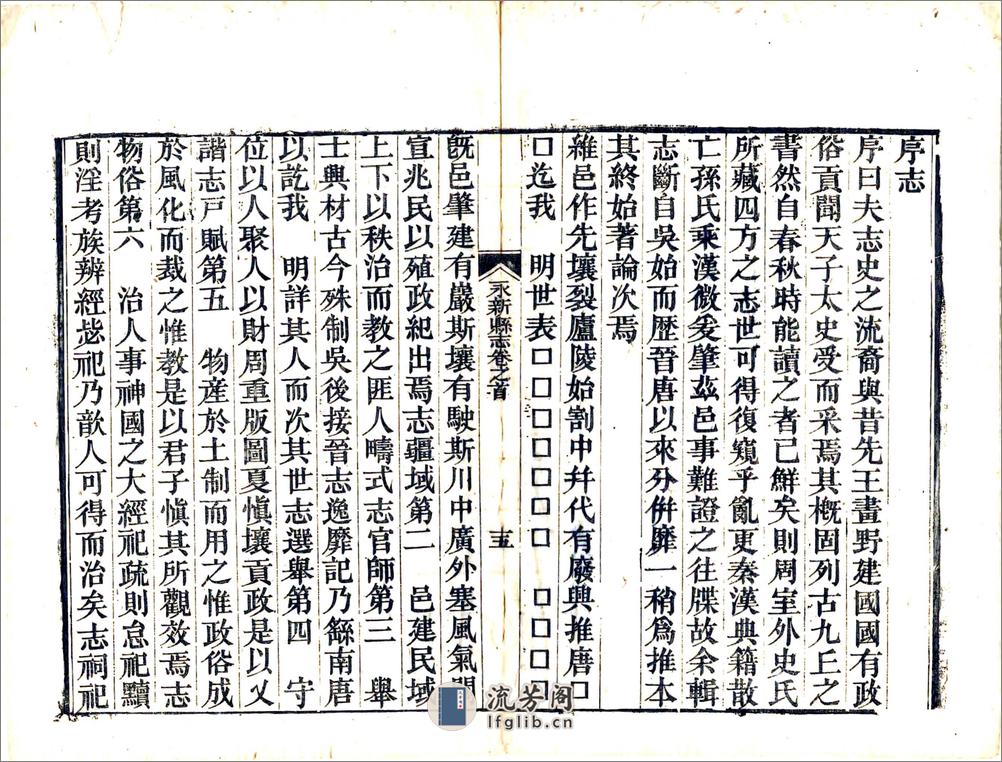 序志
序曰夫志史之流裔與昔先王畫野建國國有政
俗貢聞天子太史受而采焉其概固列古九丘之
書然自春秋時能讀之者已鮮矣則周室外史氏
所藏四方之志世可得復窺乎亂更秦漢典籍散
亡孫氏乘漢微爰肇茲邑事難證之往牒故余輯
志斷自吳始而歷晉唐以來分併靡一稍爲推本
其終始著論次焉
維邑作先壤裂廬陵始割中幷代有廢興推唐□
□迄我　明世表□□□□□□□□　□□□□
永新縣志卷之首　十五
旣邑肇建有嚴斯壤有駛斯川中廣外塞風氣
宣兆民以殖政紀出焉志疆域第二　邑建民域
上下以秩治而教之匪人疇式志官師第三　舉
士興材古今殊制吳後接晉志逸靡記乃繇南唐
以訖我　明詳其人而次其世志選舉第四　守
位以人聚人以財周重版圖夏慎壤貢政是以乂
諧志戸賦第五　物産於土制而用之惟政俗成
於風化而裁之惟教是以君子慎其所觀效焉志
物俗第六　治人事神國之大經祀疏則怠祀黷
則淫考族辨經毖祀乃歆人可得而治矣志祠祀
流芳阁
lfglib.cn